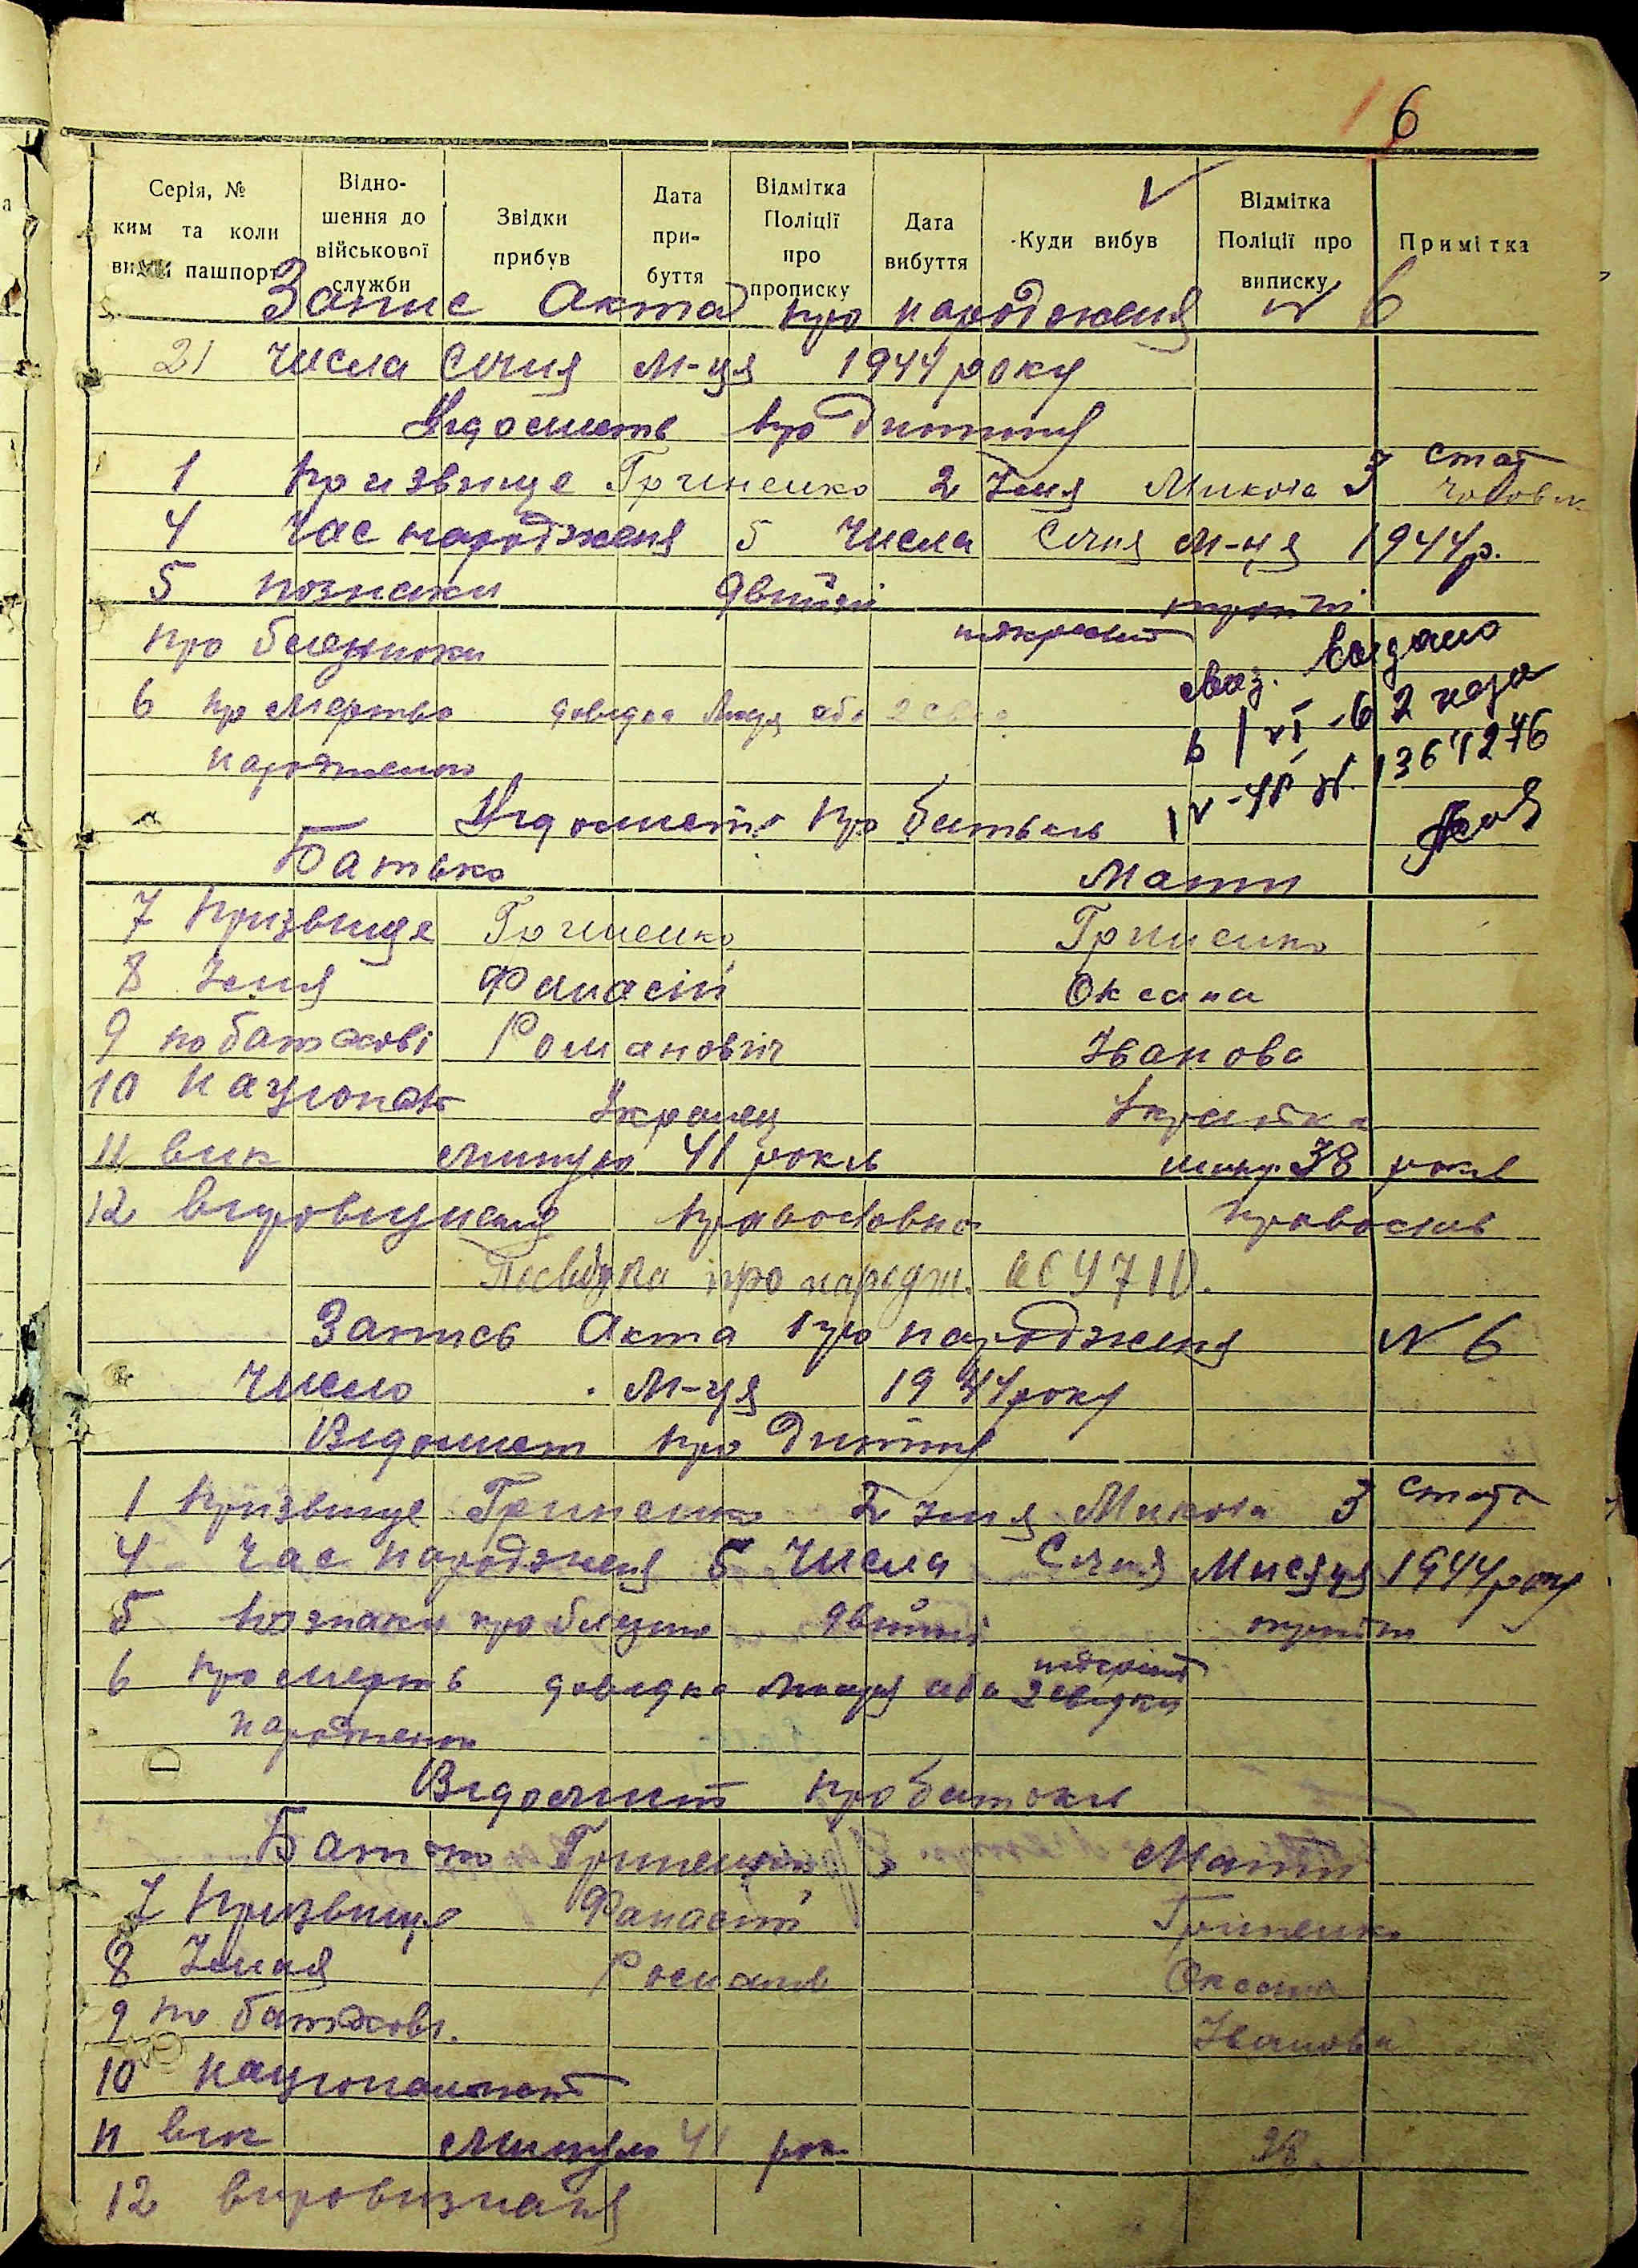 6
Серія, № ким та коли видан пашпорт
Відно- шення до військової служби
Звідки прибув
Дата при- буття
Відмітка Поліції про прописку
Дата вибуття
Куди вибув
Відмітка Поліції про виписку
Примітка
Запис Акта про народженя № 6
21 числа Січня М-ця 1944 року
Відомость про Дитину
1 Призвище Гриненко 2 Імя Микола 3 Стать
Чоловік
4 Час народженя 5 Числа Січня М-ця 1944р.
5 познаки двійні
про близнюки
видано
6 про Мертво довідка або 2
народженого
1364276
Відомость про батьків
Батько Мати
7 Призвище Гриненко Гриненко
8 Імя Фанасій Оксана
9 по батькові Романович Іванова
10 Націонал Украінец Украінка
11 вик минуло 41 років мину 38 років
12 вировизнаня православна православ
Посвідка про народж. 4710.
Запись Акта про народженя № 6
Число М-ця 1944 року
Відомист про Дитину
1 Призвище Гриненко 2 Імя Микола 3 Стать
4 Час народженя 5 Числа Січня Мисяця 1944 року
5 познаки про близню двійні
6 про мертв довидка або 2 свідки
народжен
Відомист про батьків
Батько Гриненко Мати
7 Призвище Фанасій Гриненко
8 Імя Роман Оксана
9 по батькові. Іванова
10 Национальност
11 вик Минуло 41 рок 38
12 вировизнаня